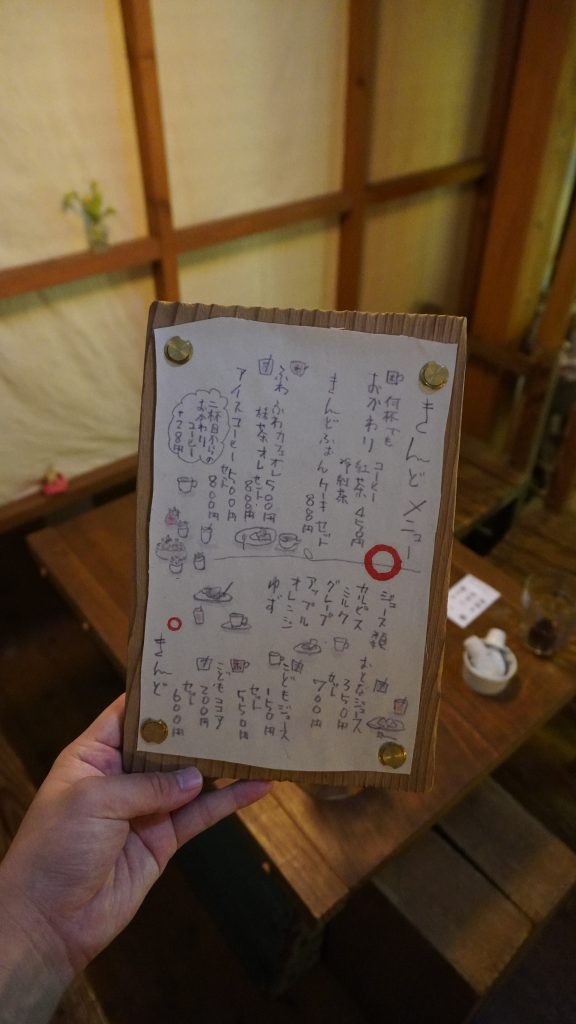 きんどメニュー
何杯でも
おかわり
コーヒー
紅茶 450円
きんどふぁんケーキセット
888円
ふわふわカフェオレ 500円
抹茶オレ セット 800円
アイスコーヒー 500円
セット 800円
二杯目からの
おかわり
コーヒー
+28円
ジュース類
カルピス
ミルク
グレープ
アップル
オレンジ
ゆず
おとなジュース
350円
セット
700円
こどもジュース
150円
セット
550円
こどもココア
200円
セット
600円
きんど